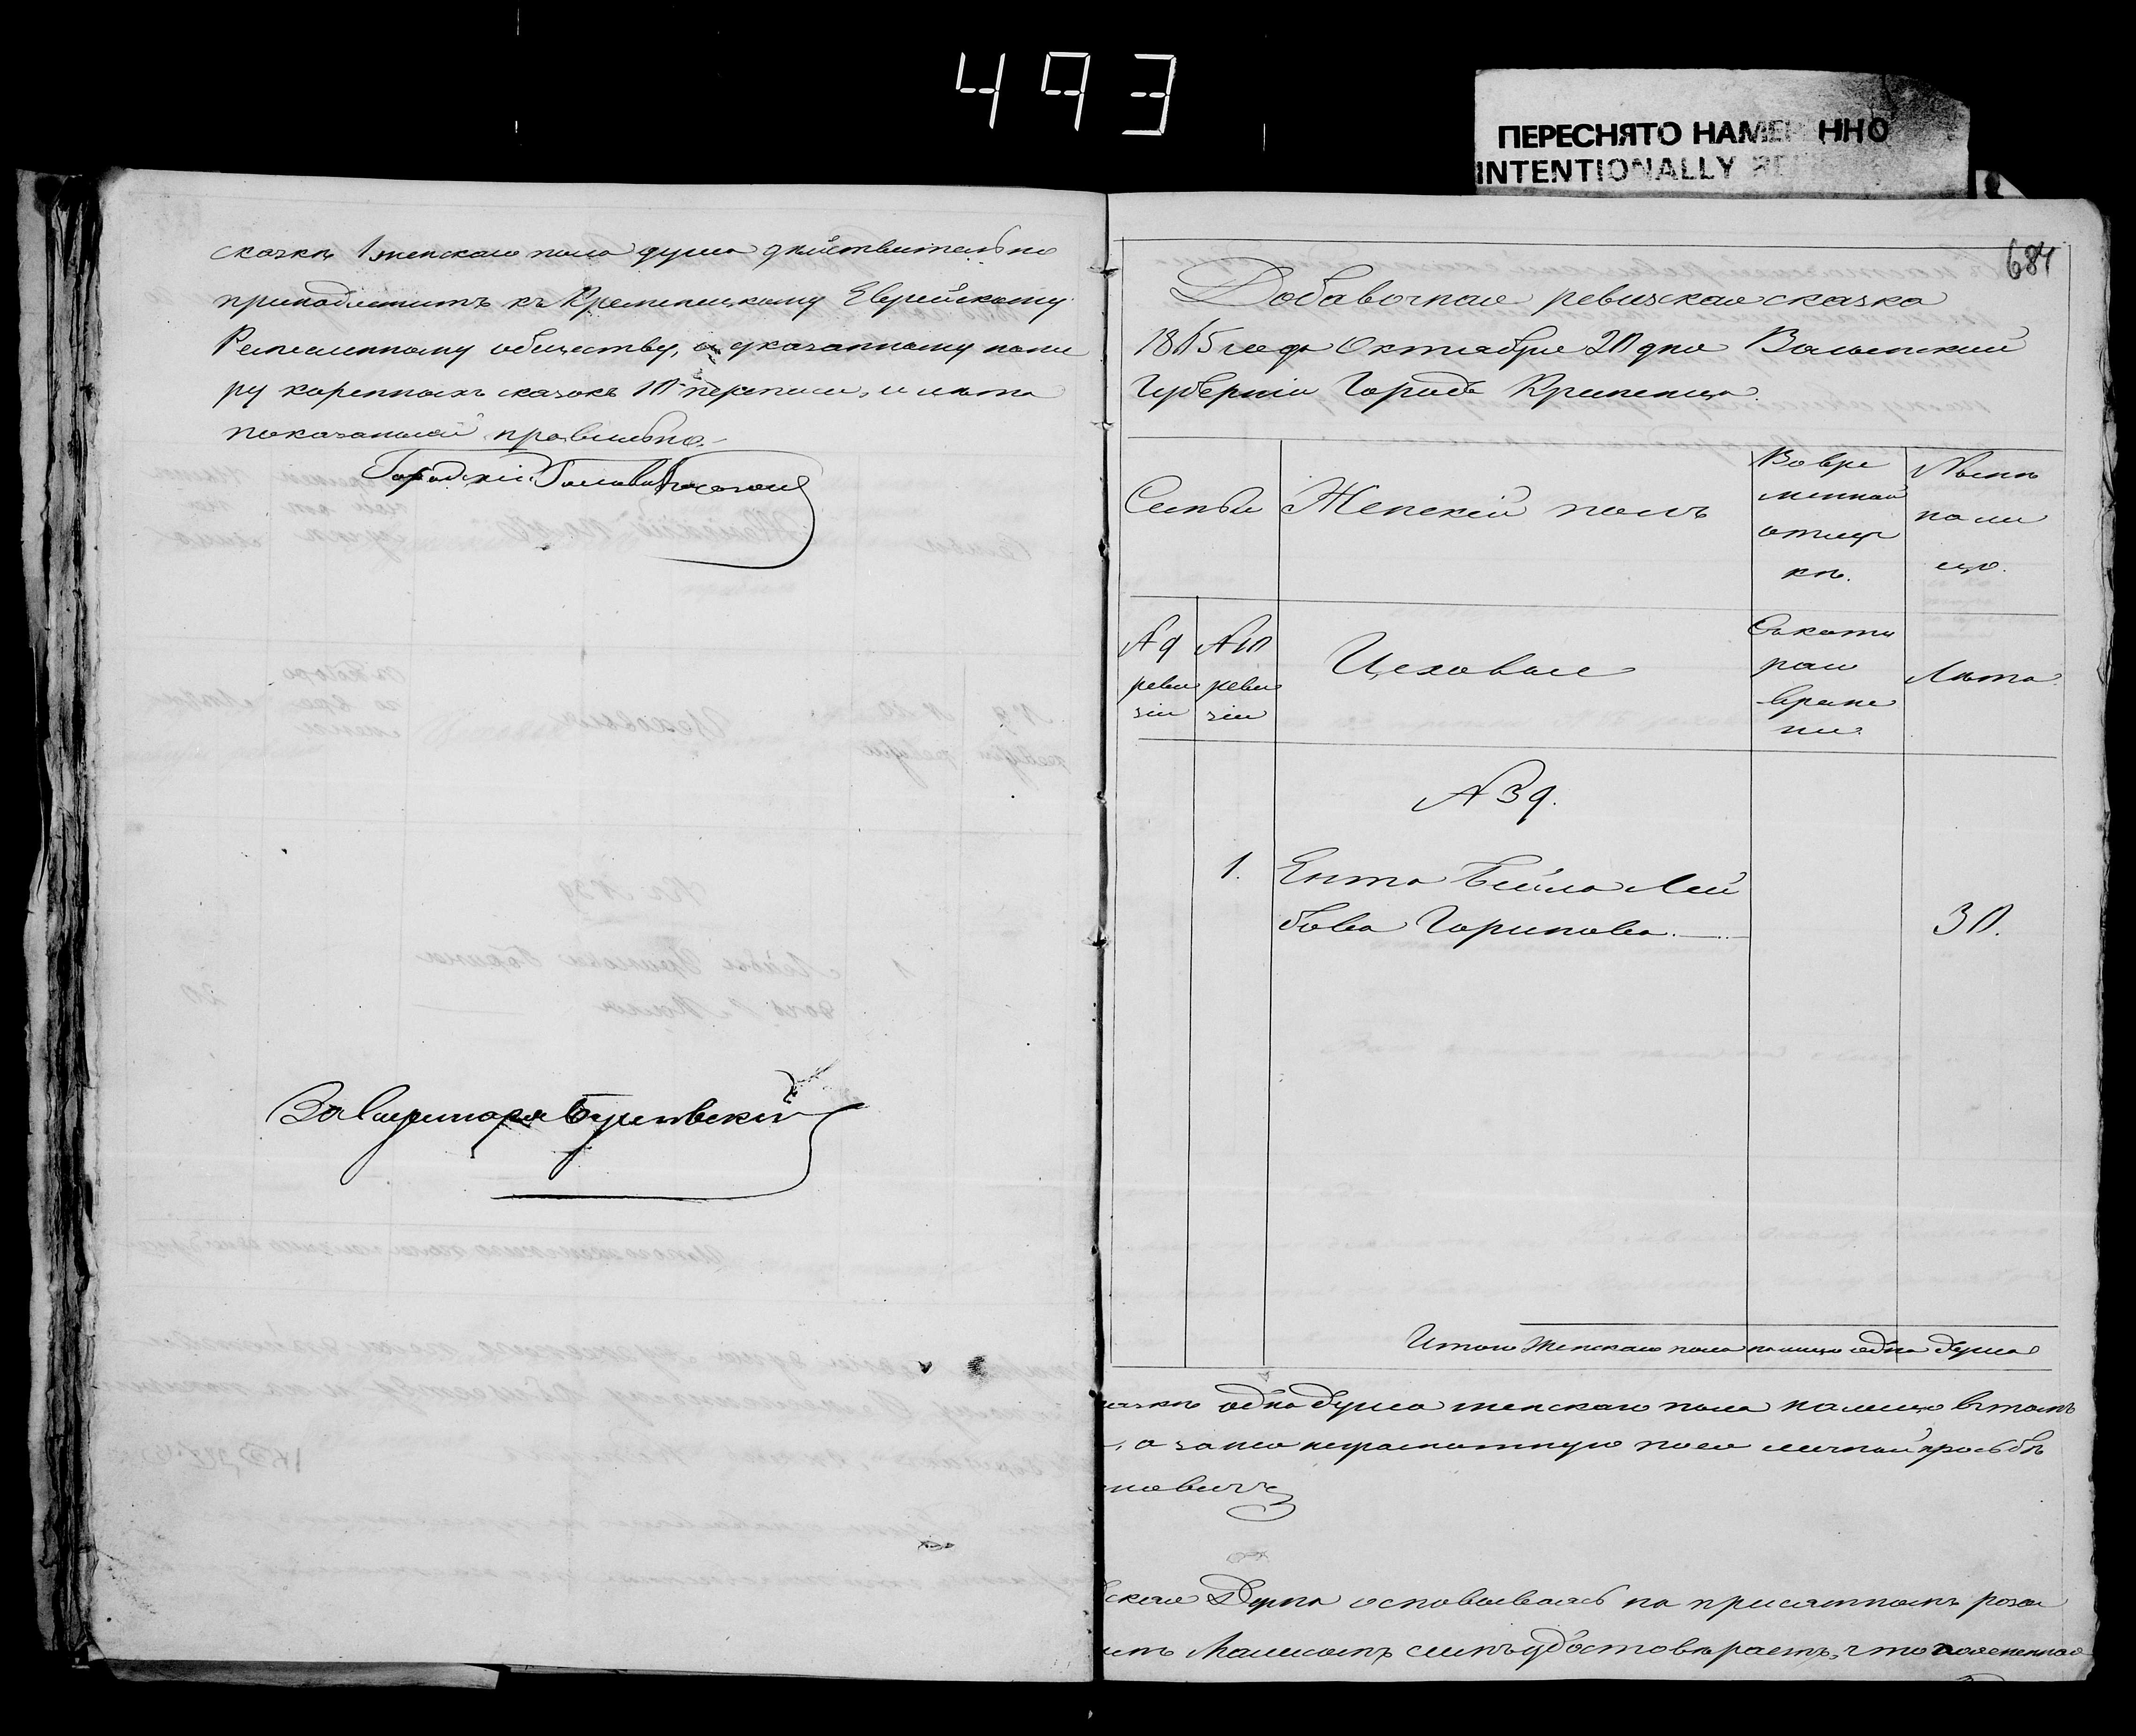 493
ПЕРЕСНЯТО НАМЕР ННО
INTENTIONALLY
сказкѣ 1 женскаго пола душа дѣйствительно
принадлежитъ къ Кременецкому Еврейскому
Ремесленному обществу, а указанному номе
ру коренныхъ сказокъ 10й переписи, и лѣта
показаной правильно.
Городскій Голова
За Секретаря
684
Добавочная ревизская сказка
1865 года Октября 20 дня Волынской
Губерніи Города Кременца.
Семьи
Женскій полъ
Во вре
менной
отлуч
кѣ.
Нынѣ
на ли
цо.
№ 9
реви
зіи
№ 10
реви
зіи
Цеховые
Съ кото
раго
време
ни
Лѣта
№ 39.
1.
Ента Бейла Лей
бова Горинова.
30.
Итого женскаго пола на лицо одна душа
одна душа женскаго пола на лицо въ томъ
а за нею неграмотную по ея личной просьбѣ
новичъ
ская Дума основываясь на присяжномъ
симъ удостовѣряетъ, что поясненная